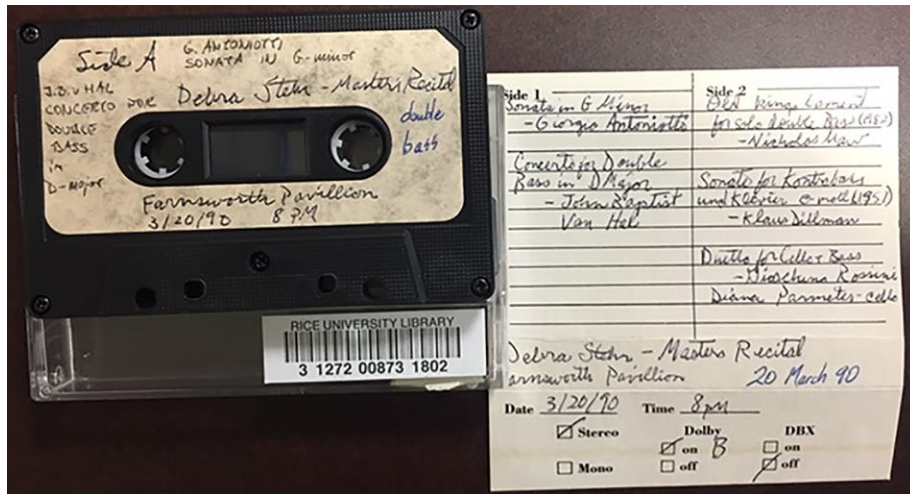 Side A
G. ANTONIOTTI
SONATA IN G-minor
J.B. VHAL
CONCERTO FOR
DOUBLE
BASS
in
D-major
Debra Stehr - Masters Recital
double
bass
Farnsworth Pavillion
3/20/90 8 PM
RICE UNIVERSITY LIBRARY
3 1272 00873 1802
Side 1
Sonata in G Minor
- Giorgio Antoniotto
Concerto for Double
Bass in D Major
- Johann Baptist
Van Hal
Side 2
Old King's Lament
for solo Double Bass (1982)
- Nicholas Maw
Sonate for Kontrabass
und Klavier e-moll (1951)
- Klaus Dillman
Duetto for Cello + Bass
- Gioschina Rossini
Diana Parmeter - cello
Debra Stehr - Masters Recital
arnsworth Pavillion 20 March 90
Date 3/20/90 Time 8pm
Stereo Dolby DBX
on B on
Mono off off